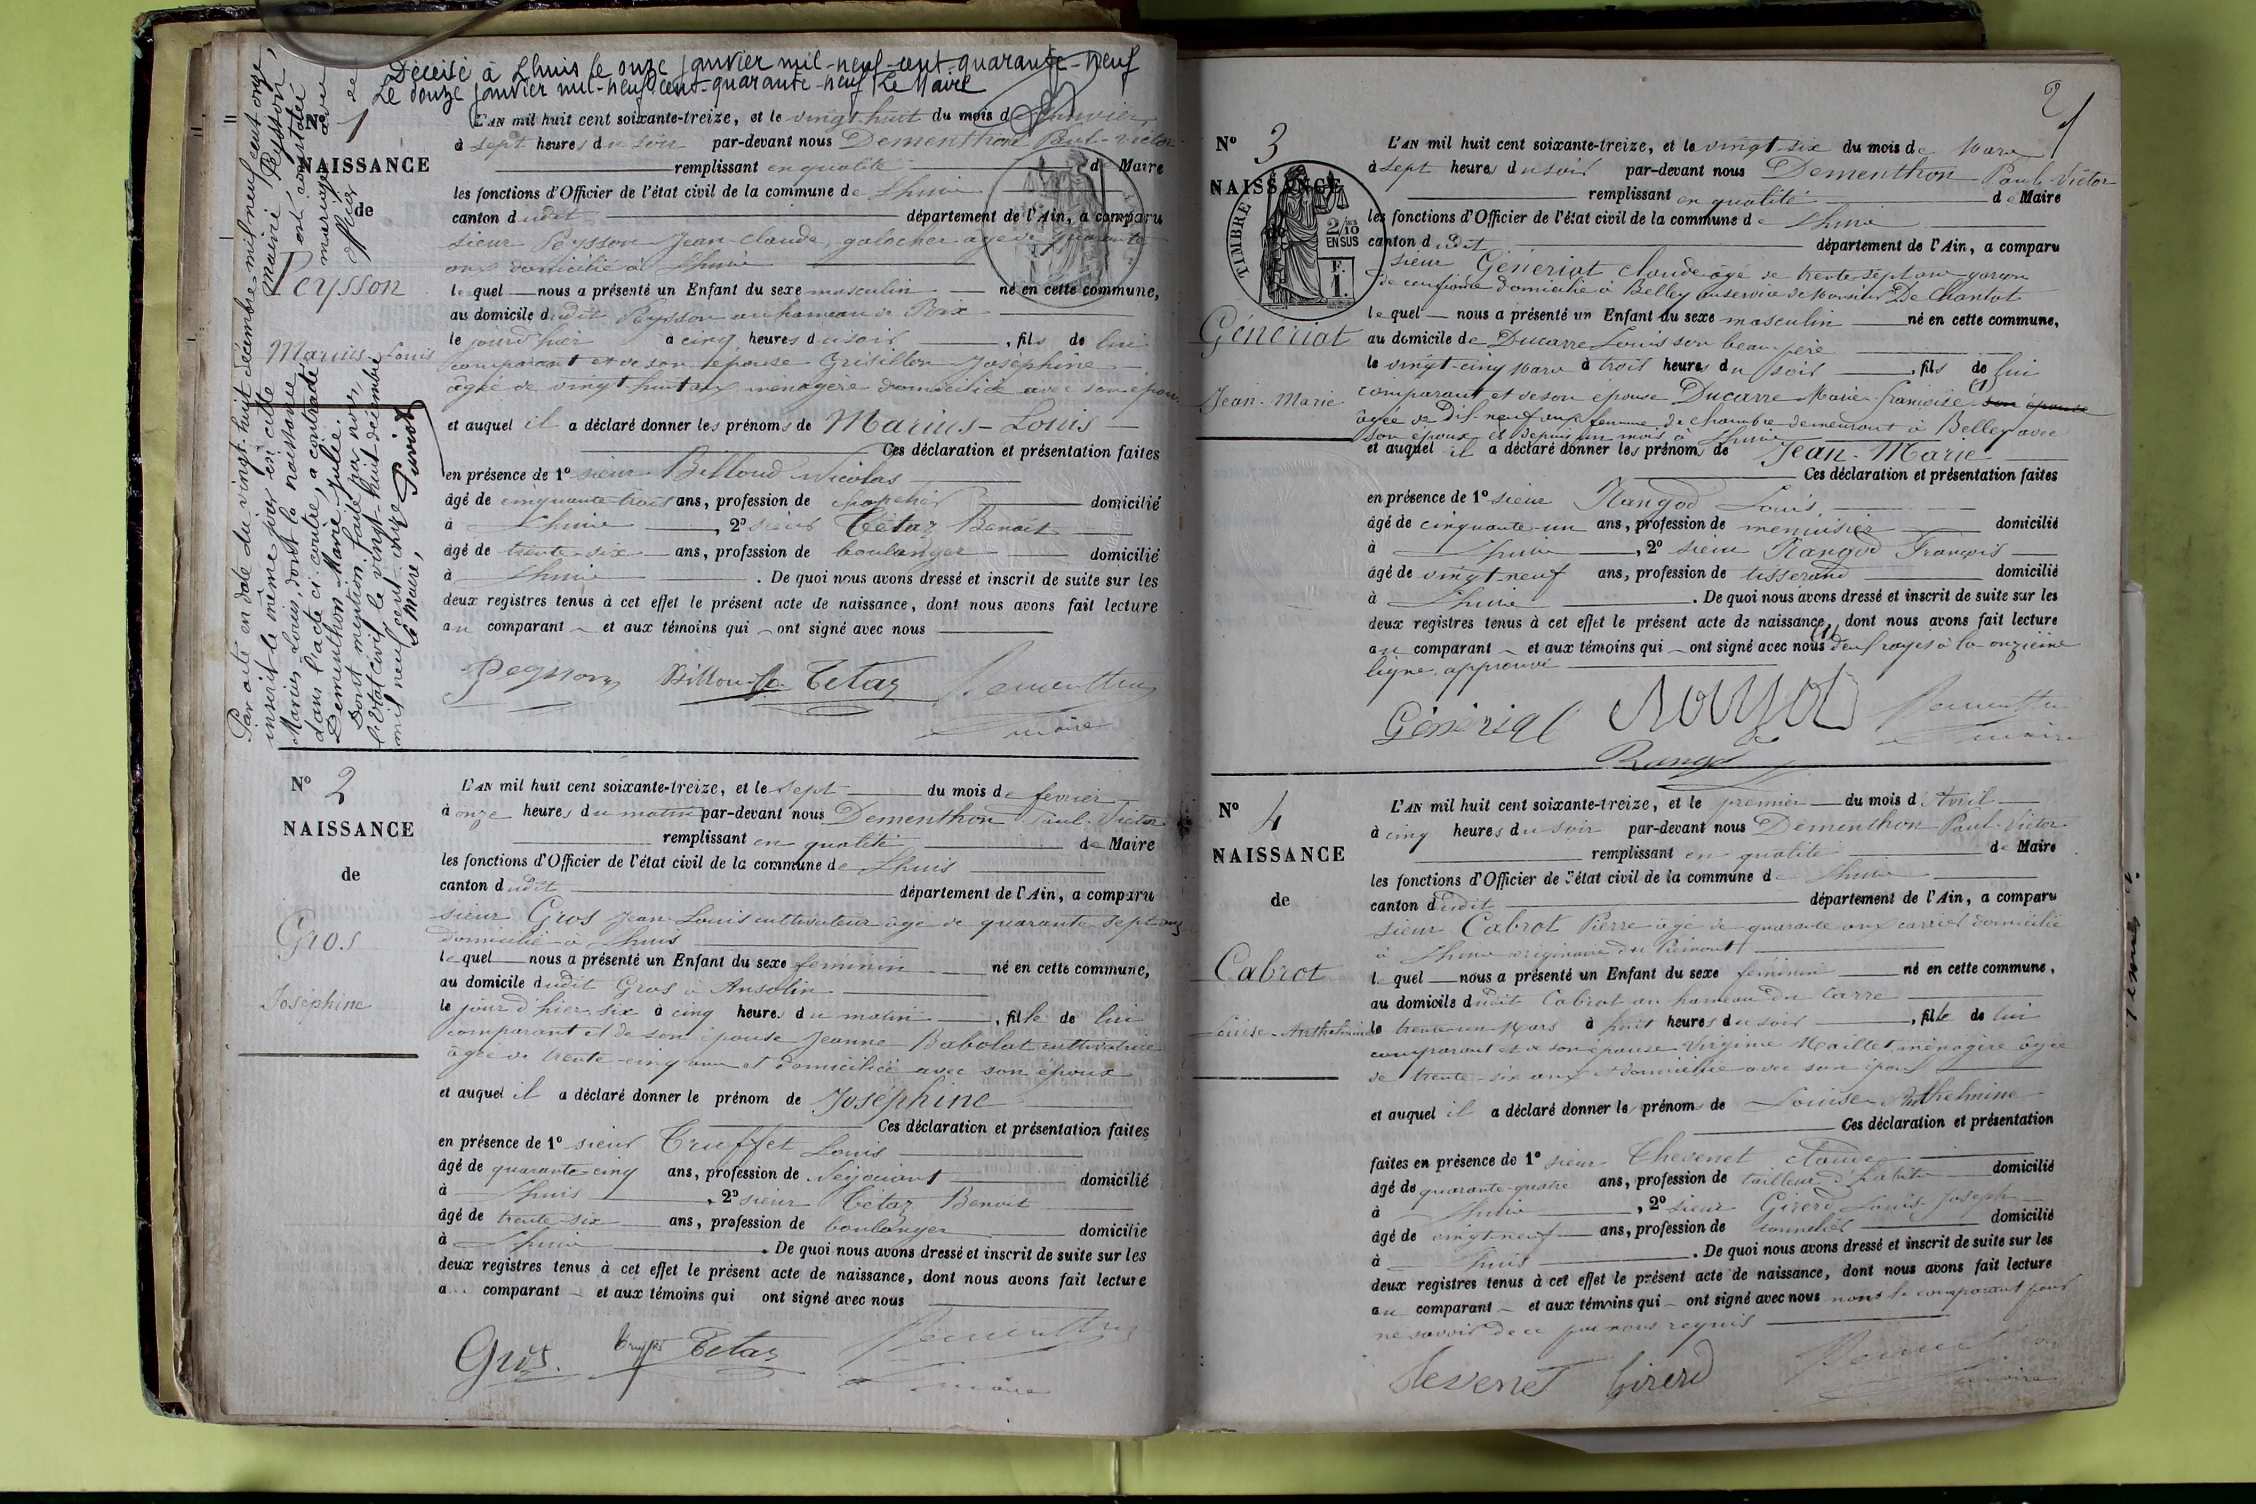 Décédé à Lhuis le onze janvier mil-neuf-cent-quarante-neuf
Le douze janvier mil-neuf-cent-quarante-neuf Le Maire
N° 1
NAISSANCE
de
Peysson
Marius Louis
Par acte en date du vingt-huit décembre mil neuf cent onze,
inscrit le même jour en cette mairie, Peysson
Marius Louis, dont la naissance est constatée
dans l'acte ci-contre, a contracté mariage avec
Dementhon Marie Julie.
Dont mention faite par nous, officier de
l'état civil, le vingt-huit décembre
mil neuf cent onze
Le Maire,
L'AN mil huit cent soixante-treize, et le vingt-huit du mois de Janvier
à sept heures du soir par-devant nous Dementhon Paul-Victor
remplissant en qualité de Maire
les fonctions d'Officier de l'état civil de la commune de Lhuis
canton dudit département de l'Ain, a comparu
sieur Peysson Jean-Claude, galocher agé de quarante
ans domicilié à Lhuis
lequel nous a présenté un Enfant du sexe masculin né en cette commune,
au domicile dudit Peysson au hameau de
le jourd'hier à cinq heures du soir, fils de lui
comparant et de son épouse Joséphine
âgée de vingt huit ans ménagère domiciliée avec son époux
et auquel il a déclaré donner les prénoms de Marius-Louis
Ces déclaration et présentation faites
en présence de 1° sieur Billoud Nicolas
âgé de cinquante-trois ans, profession de domicilié
à Lhuis, 2° sieur Tétaz Benoit
âgé de trente-six ans, profession de boulanger domicilié
à Lhuis. De quoi nous avons dressé et inscrit de suite sur les
deux registres tenus à cet effet le présent acte de naissance, dont nous avons fait lecture
au comparant et aux témoins qui ont signé avec nous
Tetaz Dementhon
maire
N° 2
NAISSANCE
de
Gros
Joséphine
L'AN mil huit cent soixante-treize, et le sept du mois de fevrier
à onze heures du matin par-devant nous Dementhon Paul-Victor
remplissant en qualité de Maire
les fonctions d'Officier de l'état civil de la commune de Lhuis
canton dudit département de l'Ain, a comparu
sieur Gros Jean-Louis cultivateur âgé de quarante sept ans
domicilié à Lhuis
lequel nous a présenté un Enfant du sexe feminin né en cette commune,
au domicile dudit Gros à Ansolin
le jour d'hier six à cinq heures du matin, fille de lui
comparant et de son épouse Jeanne Babolat cultivatrice
âgée de trente-cinq ans et domiciliée avec son époux
et auquel il a déclaré donner le prénom de Joséphine
Ces déclaration et présentation faites
en présence de 1° sieur Truffet Louis
âgé de quarante-cinq ans, profession de Négociant domicilié
à Lhuis, 2° sieur Tetaz Benoit
âgé de trente-six ans, profession de boulanger domicilié
à Lhuis. De quoi nous avons dressé et inscrit de suite sur les
deux registres tenus à cet effet le présent acte de naissance, dont nous avons fait lecture
a comparant et aux témoins qui ont signé avec nous
Gros. Truffet Tetaz Dementhon
maire
2
N° 3
NAISSANCE
de
TIMBRE
2/10
EN SUS
F.
1.
Géneriat
Jean-Marie
L'AN mil huit cent soixante-treize, et le vingt-six du mois de Mars
à sept heures du soir par-devant nous Dementhon Paul-Victor
remplissant en qualité de Maire
les fonctions d'Officier de l'état civil de la commune de Lhuis
canton dudit département de l'Ain, a comparu
sieur Géneriat Claude âgé de trente-sept ans garçon
de confiance domicilié à Belley au service de Monsieur De Chantot
lequel nous a présenté un Enfant du sexe masculin né en cette commune,
au domicile de Ducarre Louis son beau-père
le vingt-cinq Mars à trois heures du soir, fils de lui
comparant et de son épouse Ducarre Marie françoise (1) son épouse
âgée de Dix-neuf ans femme de chambre demeurant à Belley avec
son époux et depuis un mois à Lhuis
et auquel il a déclaré donner les prénoms de Jean-Marie
Ces déclaration et présentation faites
en présence de 1° sieur Rangod Louis,
âgé de cinquante-un ans, profession de menuisier domicilié
à Lhuis, 2° sieur Rangod François
âgé de vingt-neuf ans, profession de tisserand domicilié
à Lhuis. De quoi nous avons dressé et inscrit de suite sur les
deux registres tenus à cet effet le présent acte de naissance, dont nous avons fait lecture
au comparant et aux témoins qui ont signé avec nous (1) deux rayés à la onzième
ligne approuvé
Géneriat Rangod Dementhon
maire
Rangod
N° 4
NAISSANCE
de
Cabrot
Louise-Anthelmine
L'AN mil huit cent soixante-treize, et le premier du mois d'Avril
à cinq heures du soir par-devant nous Dementhon Paul-Victor
remplissant en qualité de Maire
les fonctions d'Officier de l'état civil de la commune de Lhuis
canton dudit département de l'Ain, a comparu
sieur Cabrot Pierre âgé de quarante ans carrier domicilié
à Lhuis originaire du Piémont
lequel nous a présenté un Enfant du sexe féminin né en cette commune,
au domicile dudit Cabrot au hameau du Carre
le trente-un Mars à huit heures du soir, fille de lui
comparant et de son épouse Virginie Maillet ménagère âgée
de trente-six ans et domiciliée avec son époux
et auquel il a déclaré donner les prénoms de Louise Anthelmine
Ces déclaration et présentation
faites en présence de 1° sieur Chevenet Claude
âgé de quarante-quatre ans, profession de tailleur d'habits domicilié
à Lhuis, 2° sieur Girerd Louis-Joseph
âgé de vingt-neuf ans, profession de tonnelier domicilié
à Lhuis. De quoi nous avons dressé et inscrit de suite sur les
deux registres tenus à cet effet le présent acte de naissance, dont nous avons fait lecture
au comparant et aux témoins qui ont signé avec nous non le comparant pour
ne savoir de ce par nous requis
Chevenet Girerd Dementhon
maire